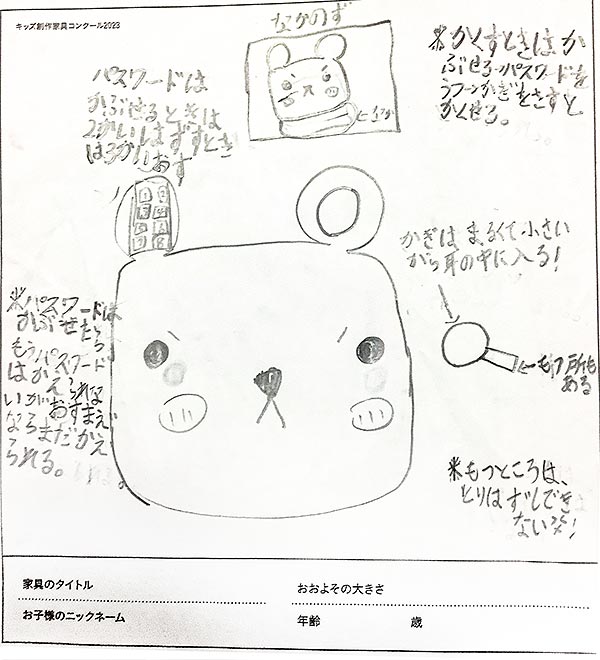 キッズ創作家具コンクール2023
なかのず
※かくすときはか
ぶせる→パスワードを
うつ→かぎをさすと
かくせる。
パスワードは
かぶせるときは
2かいはずすとき
は3かいおす
かぎは まるくて小さい
から耳の中に入る!
※パスワードは
かぶせたら
もうパスワード
はかえられな
いが おすまえ
ならまだかえ
られる。
←もつ所も
ある
※もつところは、
とりはずしでき
ない
家具のタイトル
おおよその大きさ
お子様のニックネーム
年齢 歳